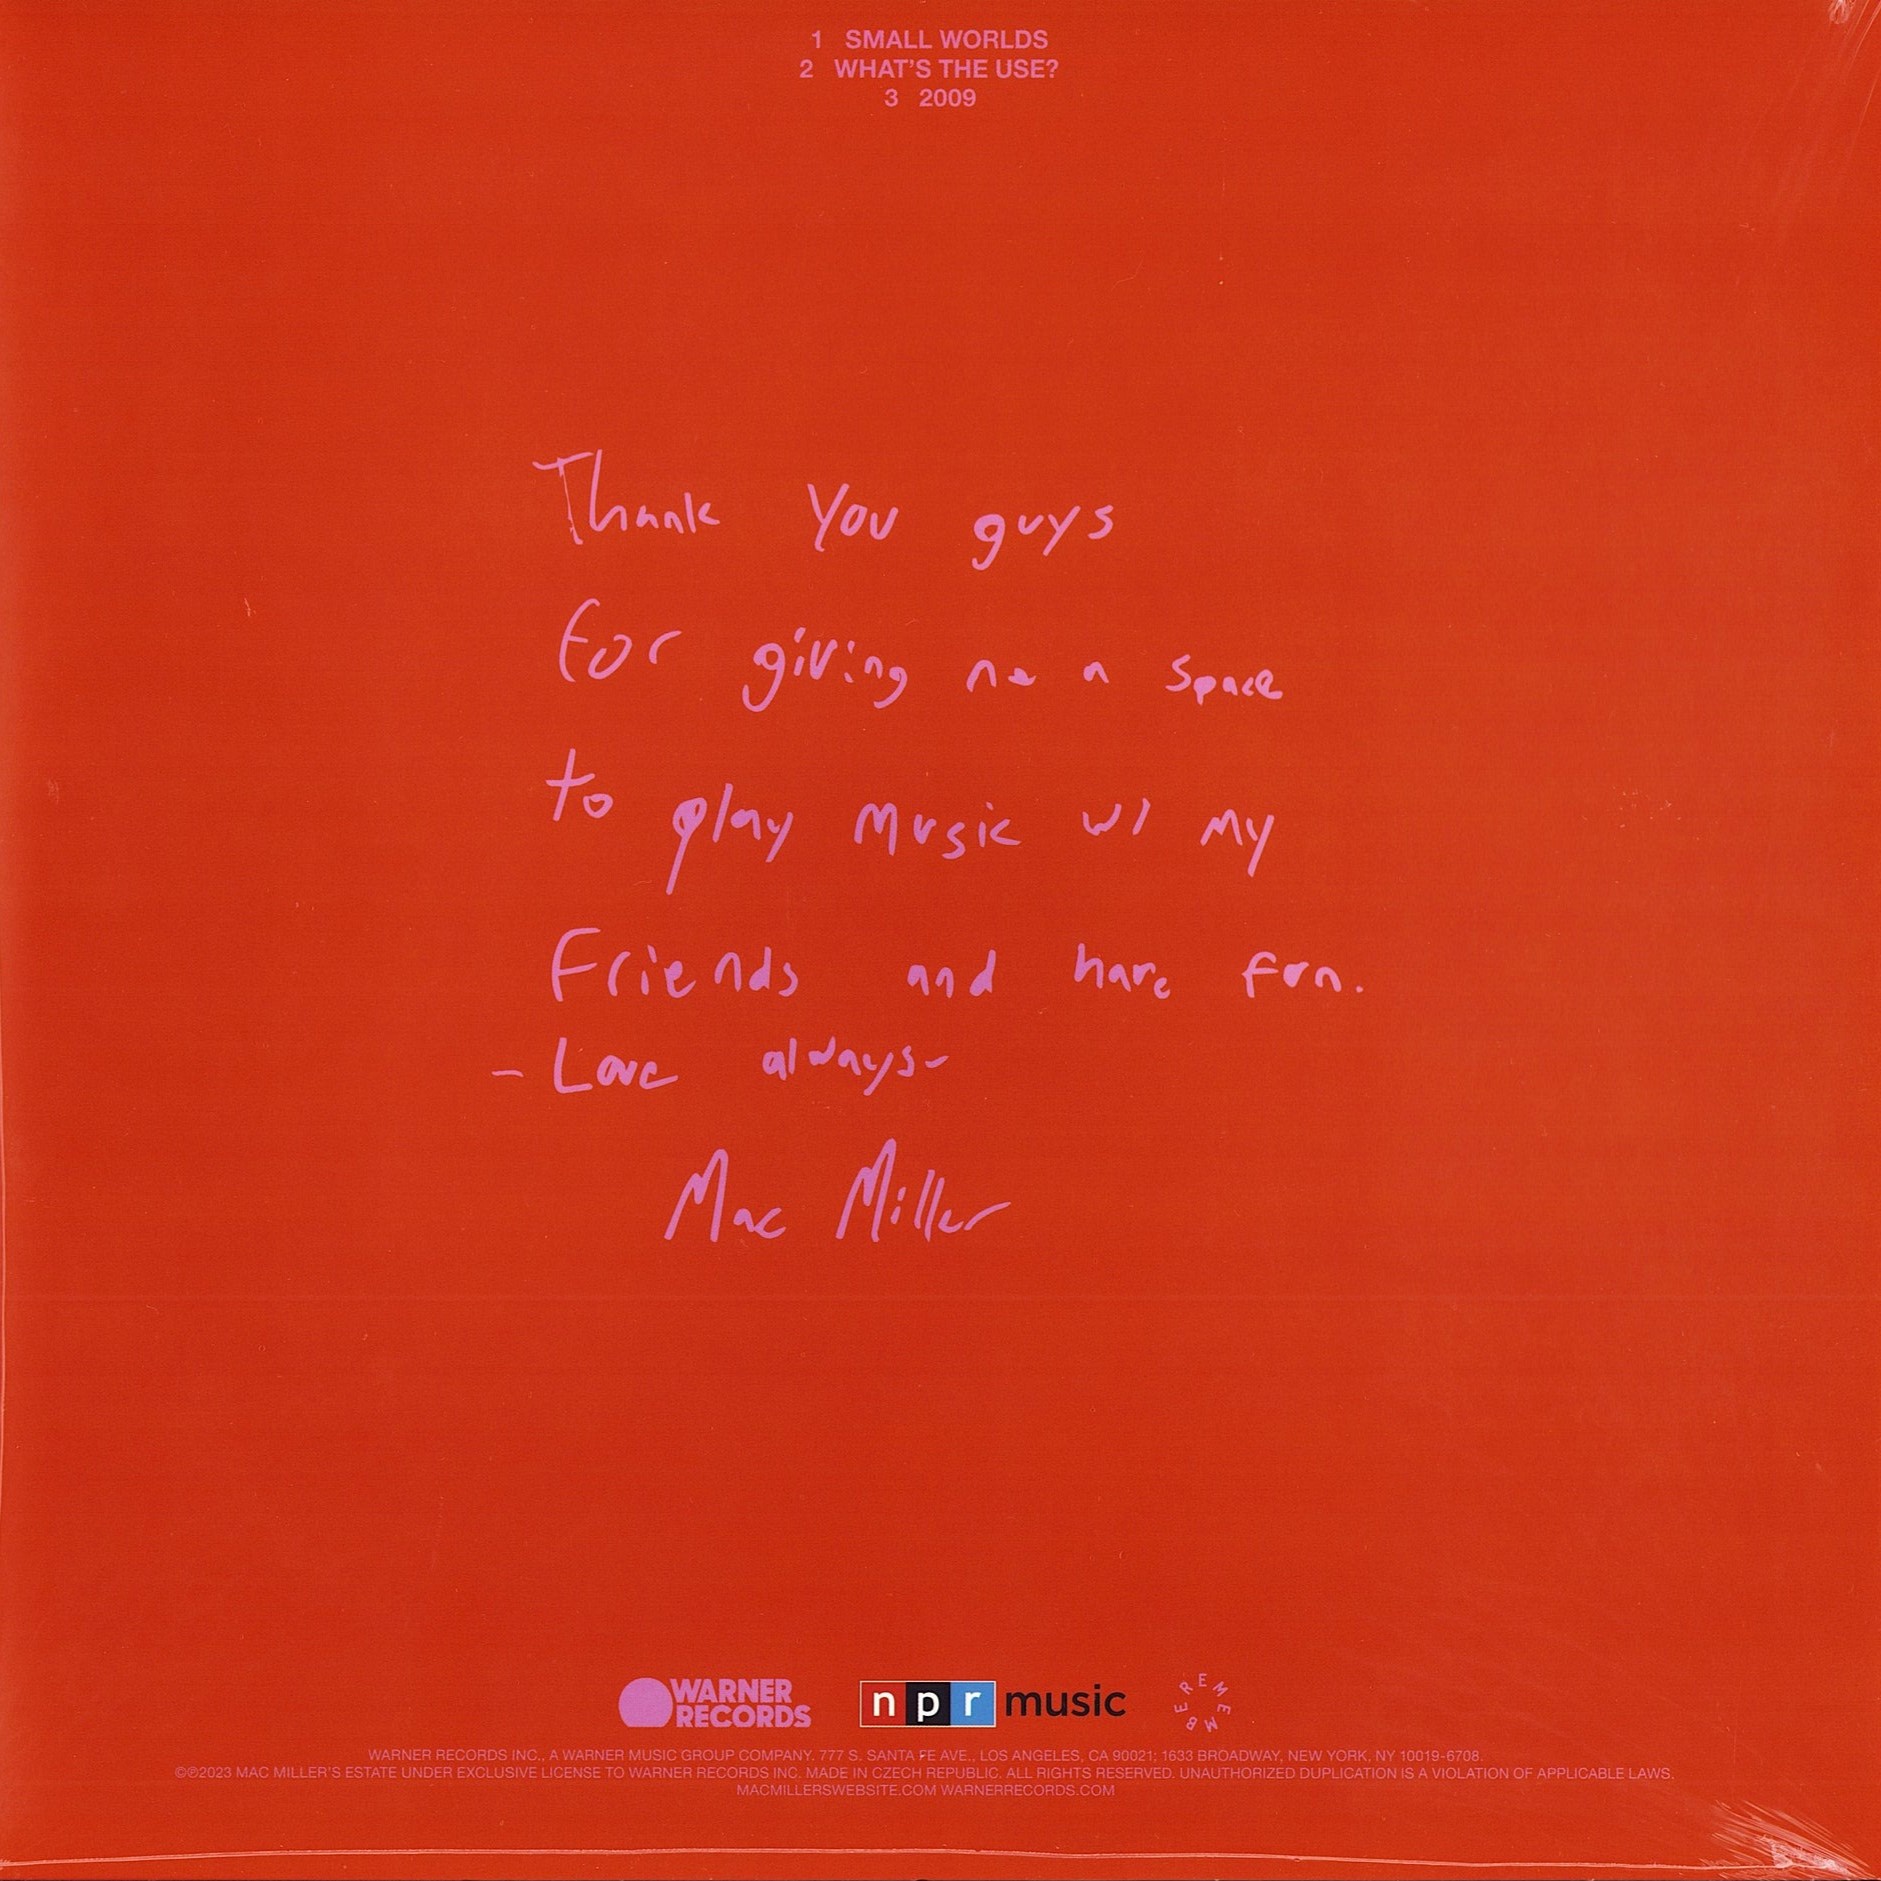 1 SMALL WORLDS
2 WHAT'S THE USE?
3 2009
Thank You guys
for giving me a space
to play music w/ my
Friends and have fun.
- Love always -
Mac Miller
WARNER RECORDS
npr music
REMEMBER
WARNER RECORDS INC., A WARNER MUSIC GROUP COMPANY. 777 S. SANTA FE AVE., LOS ANGELES, CA 90021; 1633 BROADWAY, NEW YORK, NY 10019-6708.
©℗2023 MAC MILLER'S ESTATE UNDER EXCLUSIVE LICENSE TO WARNER RECORDS INC. MADE IN CZECH REPUBLIC. ALL RIGHTS RESERVED. UNAUTHORIZED DUPLICATION IS A VIOLATION OF APPLICABLE LAWS.
MACMILLERSWEBSITE.COM WARNERRECORDS.COM